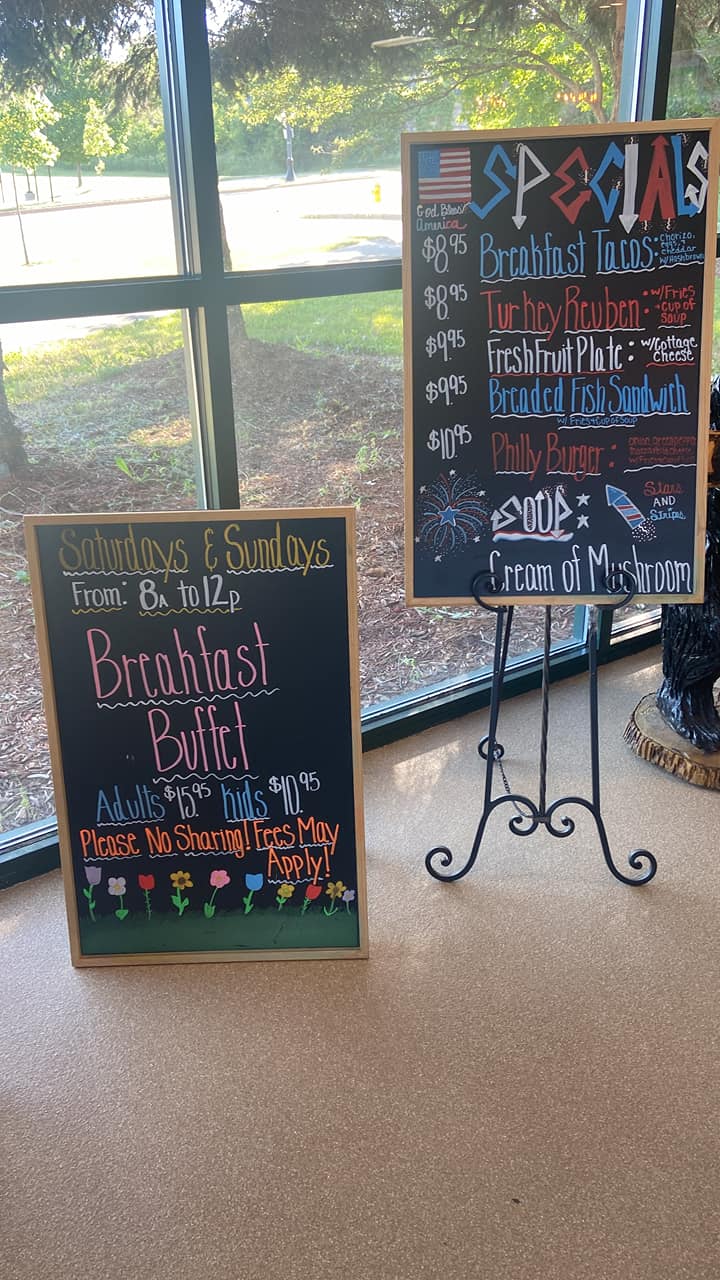 Saturdays & Sundays
From: 8A to 12P
Breakfast
Buffet
Adults $15.95 Kids $10.95
Please No Sharing! Fees May
Apply!
SPECIALS
God Bless
America
$8.95 Breakfast Tacos: Chorizo,
eggs, &
cheddar
w/Hashbrown
$8.95 Turkey Reuben • w/Fries
+ cup of
soup
$9.95 Fresh Fruit Plate: w/Cottage
Cheese
$9.95 Breaded Fish Sandwich
w/ Fries + Cup of Soup
$10.95 Philly Burger: onion, green pepper
SOUP:
Stars
AND
Stripes
Cream of Mushroom